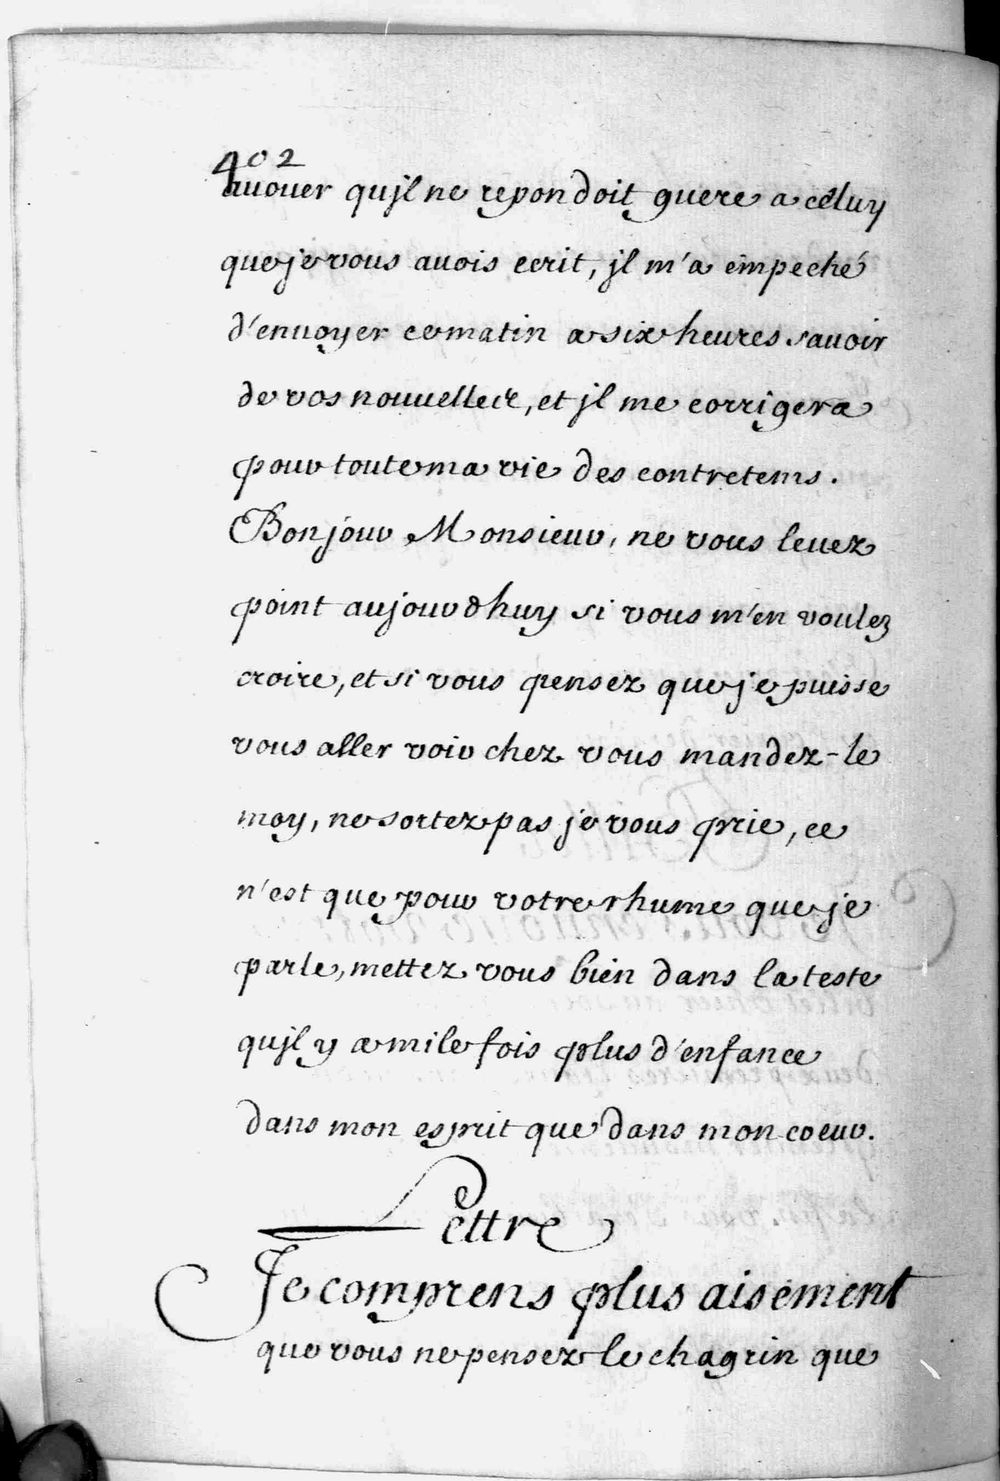 402
avouer qujl ne repondoit guere a celuy
que je vous avois ecrit, jl m'a empeché
d'envoyer ce matin a six heures savoir
de vos nouvelles, et jl me corrigera
pour toute ma vie des contretems.
Bonjour Monsieur, ne vous levez
point aujourdhuy si vous m'en voulez
croire, et si vous pensez que je puisse
vous aller voir chez vous mandez-le
moy, ne sortez pas je vous prie, ce
n'est que pour votre rhume que je
parle, mettez vous bien dans la teste
qujl y a mile fois plus d'enfance
dans mon esprit que dans mon coeur.
Lettre
Je comprens plus aisement
que vous ne pensez le chagrin que